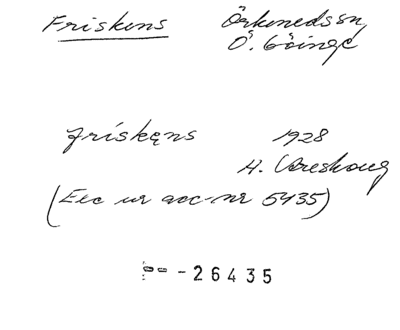 Friskens Örkeneds sn,
Ö. Göinge
friskęns 1928
H. Areskoug
(Exc ur acc-nr 5435)
-26435